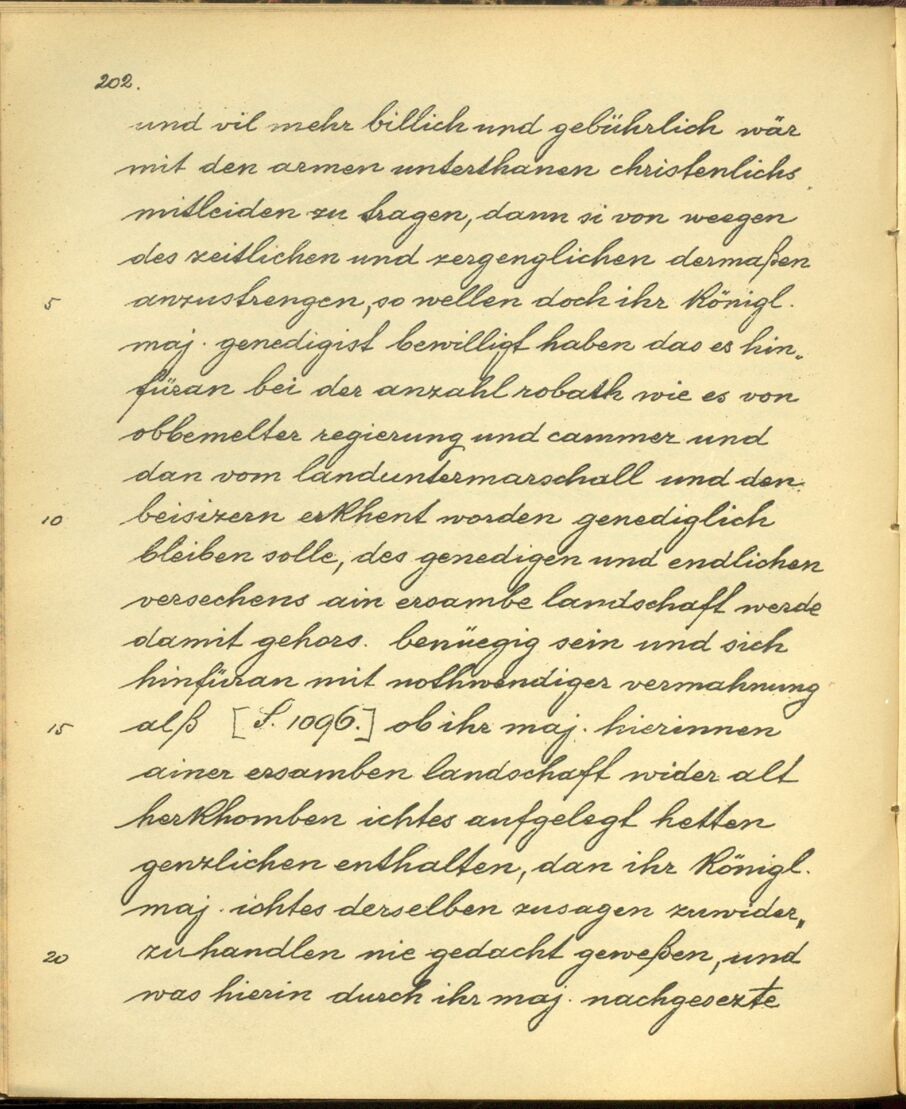 202.
und vil mehr billich und gebührlich wär
mit den armen unterthanen christenlichs
mitleiden zu tragen, dann si von weegen
des zeitlichen und zergenglichen dermaßen
5 anzustrengen, so wellen doch ihr königl.
maj. genedigist bewilligt haben das es hin„
füran bei der anzahl robath wie es von
obbemelter regierung und cammer und
dan vom landuntermarschall und den
10 beisizern erkhent worden genediglich
bleiben solle, des genedigen und endlichen
versechens ain ersambe landschaft werde
damit gehors. benüegig sein und sich
hinfüran mit nothwendiger vermahnung
15 alß [S. 1096.] ob ihr maj. hierinnen
ainer ersamben landschaft wider alt
herkhomben ichtes aufgelegt hetten
genzlichen enthalten, dan ihr königl.
maj. ichtes derselben zusagen zuwider„
20 zuhandlen nie gedacht geweßen, und
was hierin durch ihr maj. nachgesezte